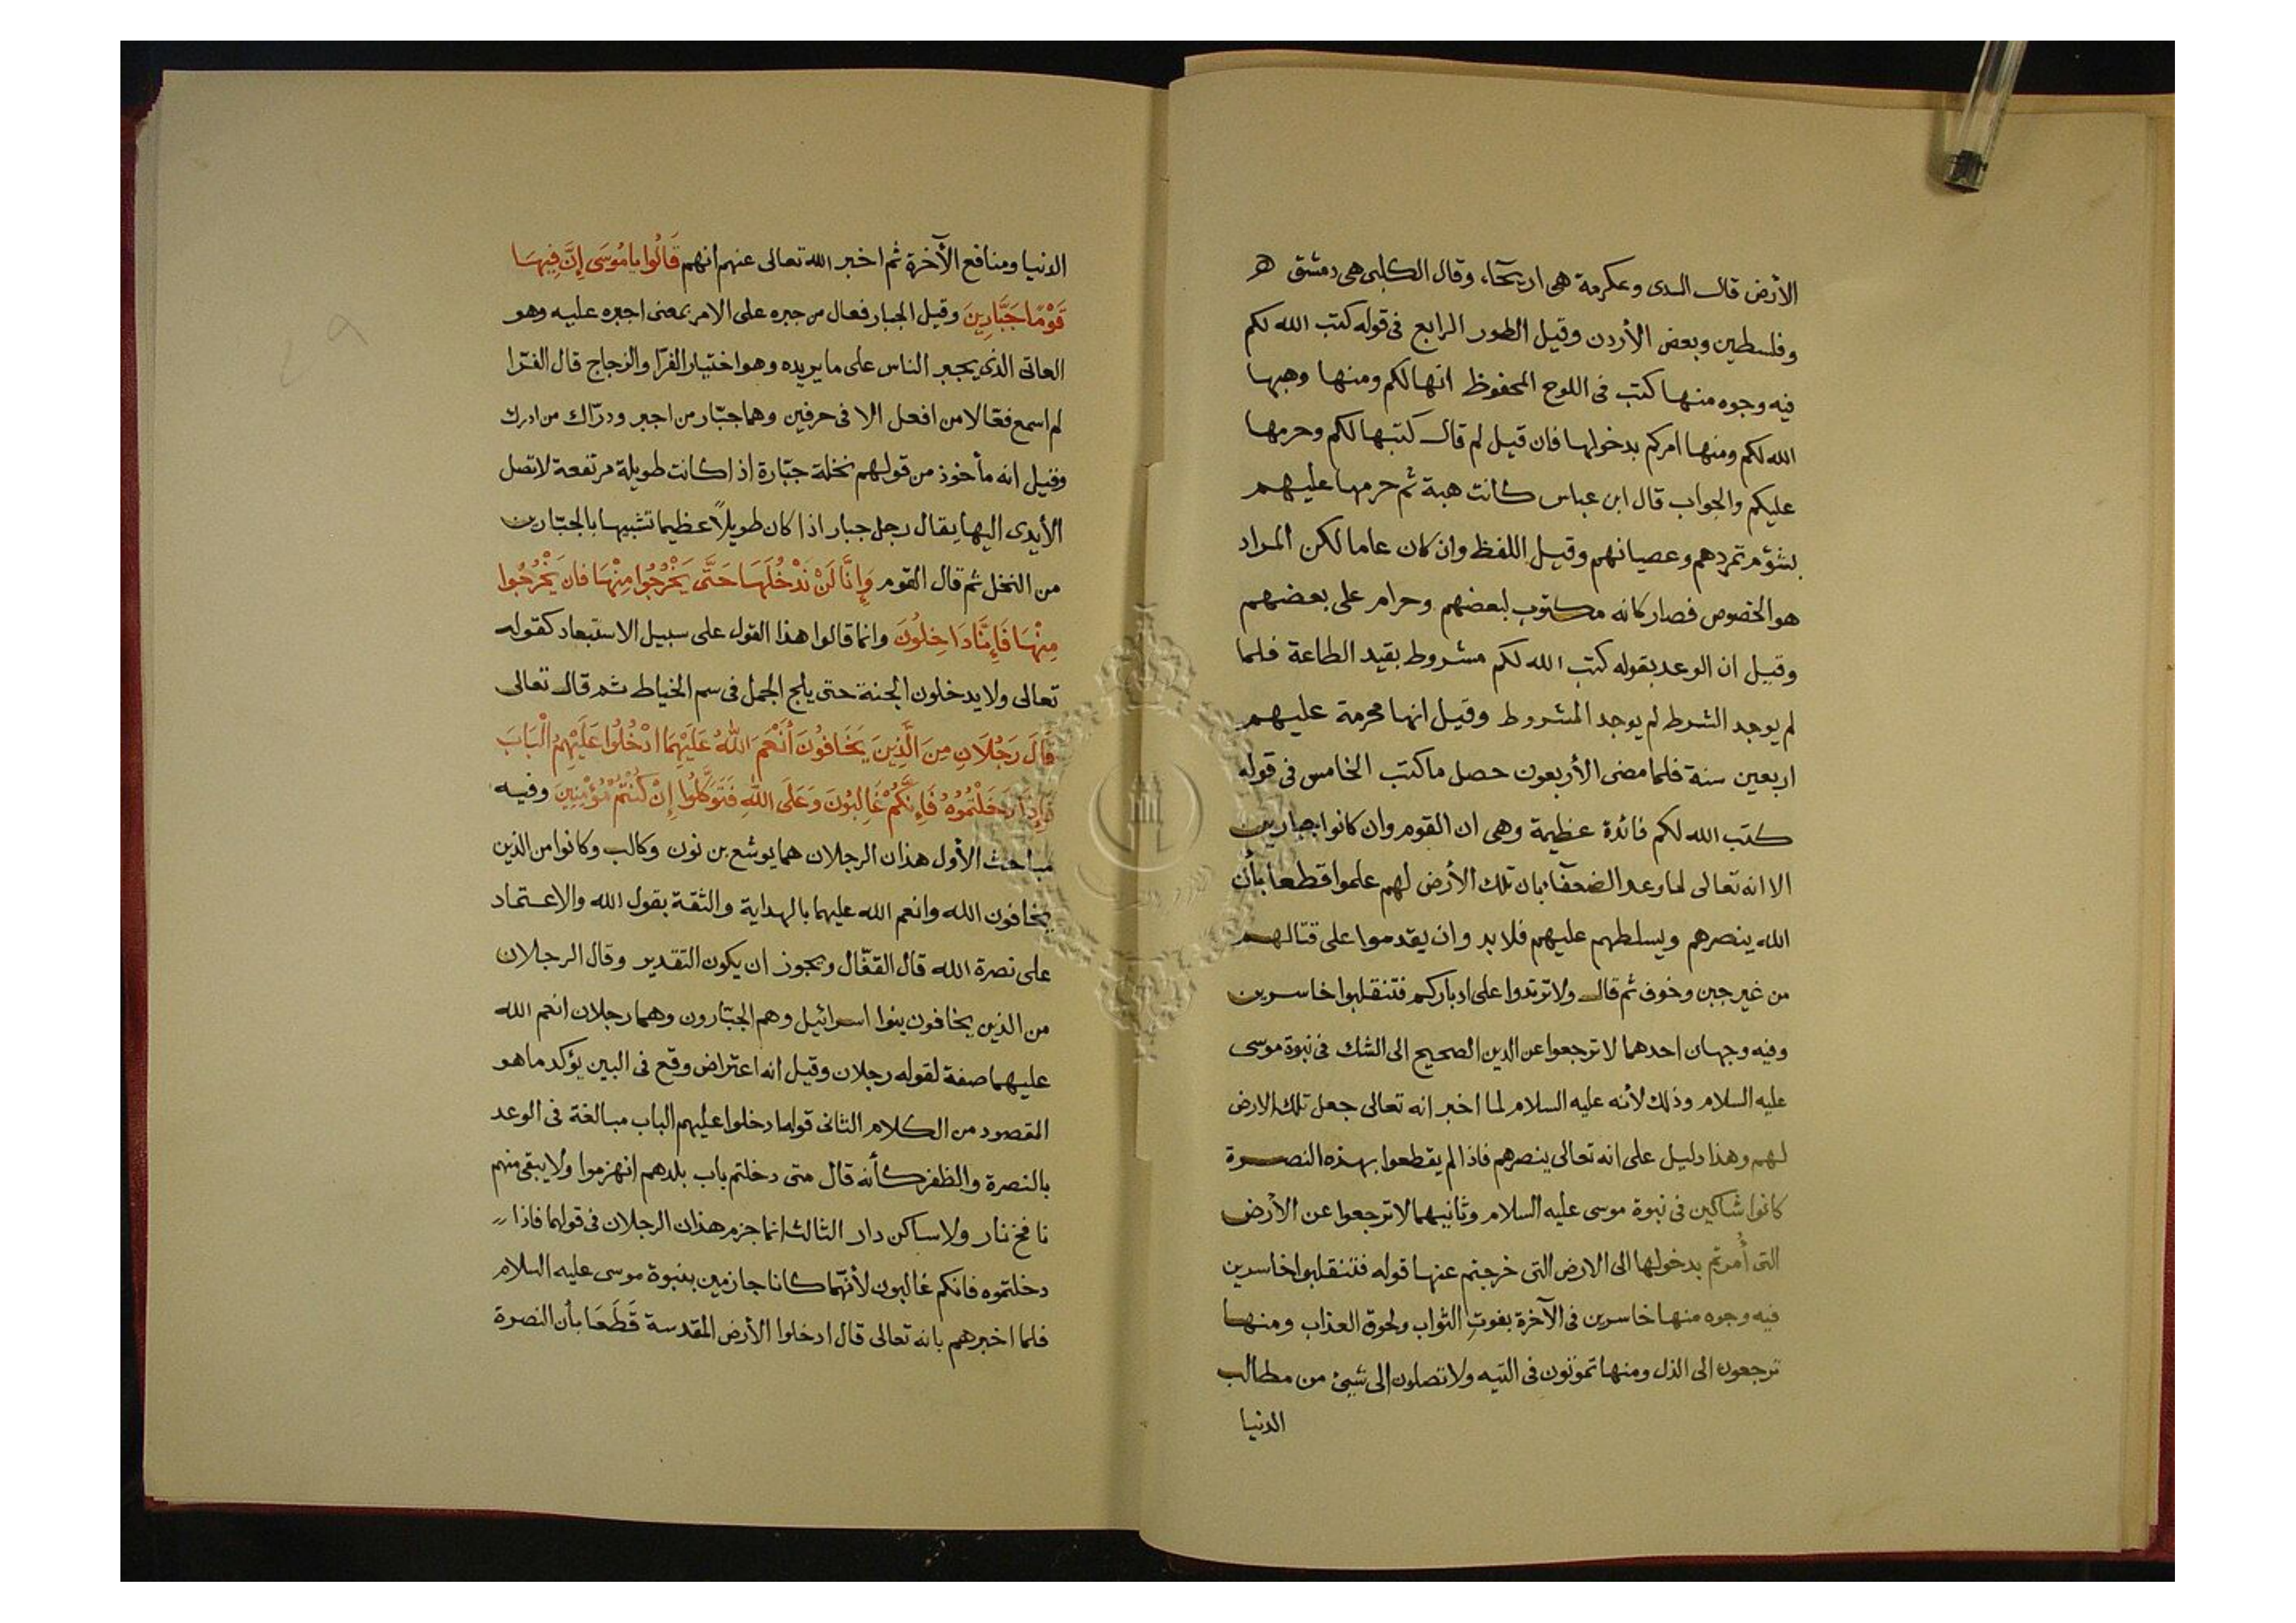 الأرض قال السدى وعكرمة هى اريحآء وقال الكلبى هى دمشق
وفلسطين وبعض الأردن وقيل الطور الرابع فى قوله كتب الله لكم
فيه وجوه منها كتب فى اللوح المحفوظ انها لكم ومنها وهبها
الله لكم ومنها امركم بدخولها فان قيل لم قال كتبها لكم وحرمها
عليكم والجواب قال ابن عباس كانت هبة ثم حرمها عليهم
بشؤم تمردهم وعصيانهم وقيل اللفظ وان كان عاما لكن المراد
هو الخصوص فصار كانه مكتوب لبعضهم وحرام على بعضهم
وقيل ان الوعد بقوله كتب الله لكم مشروط بقيد الطاعة فلما
لم يوجد الشرط لم يوجد المشروط وقيل انها محرمة عليهم
اربعين سنة فلما مضى الأربعون حصل ما كتب الخامس فى قوله
كتب الله لكم فائدة عظيمة وهى ان القوم وان كانوا جبارين
الا انه تعالى لما وعد الضعفآء بان تلك الأرض لهم علموا قطعا بأن
الله ينصرهم ويسلطهم عليهم فلا بد وان يقدموا على قتالهم
من غير جبن وخوف ثم قال ولا ترتدوا على ادباركم فتنقلبوا خاسرين
وفيه وجهان احدهما لا ترجعوا عن الدين الصحيح الى الشك فى نبوة موسى
عليه السلام وذلك لأنه عليه السلام لما اخبر انه تعالى جعل تلك الارض
لهم وهذا دليل على انه تعالى ينصرهم فاذا لم يقطعوا بهذه النصرة
كانوا شاكين فى نبوة موسى عليه السلام وثانيهما لا ترجعوا عن الأرض
التى أُمرتم بدخولها الى الارض التى خرجتم عنها قوله فتنقلبوا خاسرين
فيه وجوه منها خاسرين فى الآخرة بفوت الثواب ولحوق العذاب ومنها
ترجعون الى الذل ومنها تموتون فى التيه ولا تصلون إلى شيئ من مطالب
الدنيا
الدنيا ومنافع الآخرة ثم اخبر الله تعالى عنهم انهم قَالُوا يا مُوسَى إِنَّ فِيهَا
قَوْمًا جَبَّارِينَ وقيل الجبار فعال من جبره على الامر بمعنى اجبره عليه وهو
العاتى الذى يجبر الناس على ما يريده وهو اختيار الفرّا والزجاج قال الفرّا
لم اسمع فعّالا من افعل الا فى حرفين وهما جبّار من اجبر ودرّاك من ادرك
وقيل انه مأخوذ من قولهم نخلة جبّارة اذا كانت طويلة مرتفعة لا تصل
الأيدى اليها يقال رجل جبار اذا كان طويلاً عظيما تشبيها بالجبّارين
من النخل ثم قال القوم وَإِنَّا لَنْ نَدْخُلَهَا حَتَّى يَخْرُجُوا مِنْهَا فَان يَخْرُجُوا
مِنْهَا فَإِنَّا دَاخِلُونَ وانما قالوا هذا القول على سبيل الاستبعاد كقوله
تعالى ولا يدخلون الجنة حتى يلج الجمل فى سم الخياط ثم قال تعالى
قَالَ رَجُلَانِ مِنَ الَّذِينَ يَخَافُونَ أَنْعَمَ اللهُ عَلَيْهِمَا ادْخُلُوا عَلَيْهِمُ الْبَابَ
فَإِذَا دَخَلْتُمُوهُ فَإِنَّكُمْ غَالِبُونَ وَعَلَى اللهِ فَتَوَكَّلُوا إِنْ كُنْتُمْ مُؤْمِنِينَ وفيه
مباحث الأول هذان الرجلان هما يوشع بن نون وكالب وكانوا من الذين
يخافون الله وانعم الله عليهما بالهداية والثقة بقول الله والاعتماد
على نصرة الله قال القفّال ويجوز ان يكون التقدير وقال الرجلان
من الذين يخافون بنوا اسرائيل وهم الجبّارون وهما رجلان انعم الله
عليهما صفة لقوله رجلان وقيل انه اعتراض وقع فى البين يؤكد ما هو
المقصود من الكلام الثانى قوله ادخلوا عليهم الباب مبالغة فى الوعد
بالنصرة والظفر كأنه قال متى دخلتم باب بلدهم انهزموا ولا يبقى منهم
نافخ نار ولا ساكن دار الثالث انما جزم هذان الرجلان فى قولهما فاذا
دخلتموه فانكم غالبون لأنهما كانا جازمين بنبوة موسى عليه السلام
فلما اخبرهم بانه تعالى قال ادخلوا الأرض المقدسة قَطَعَا بأن النصرة